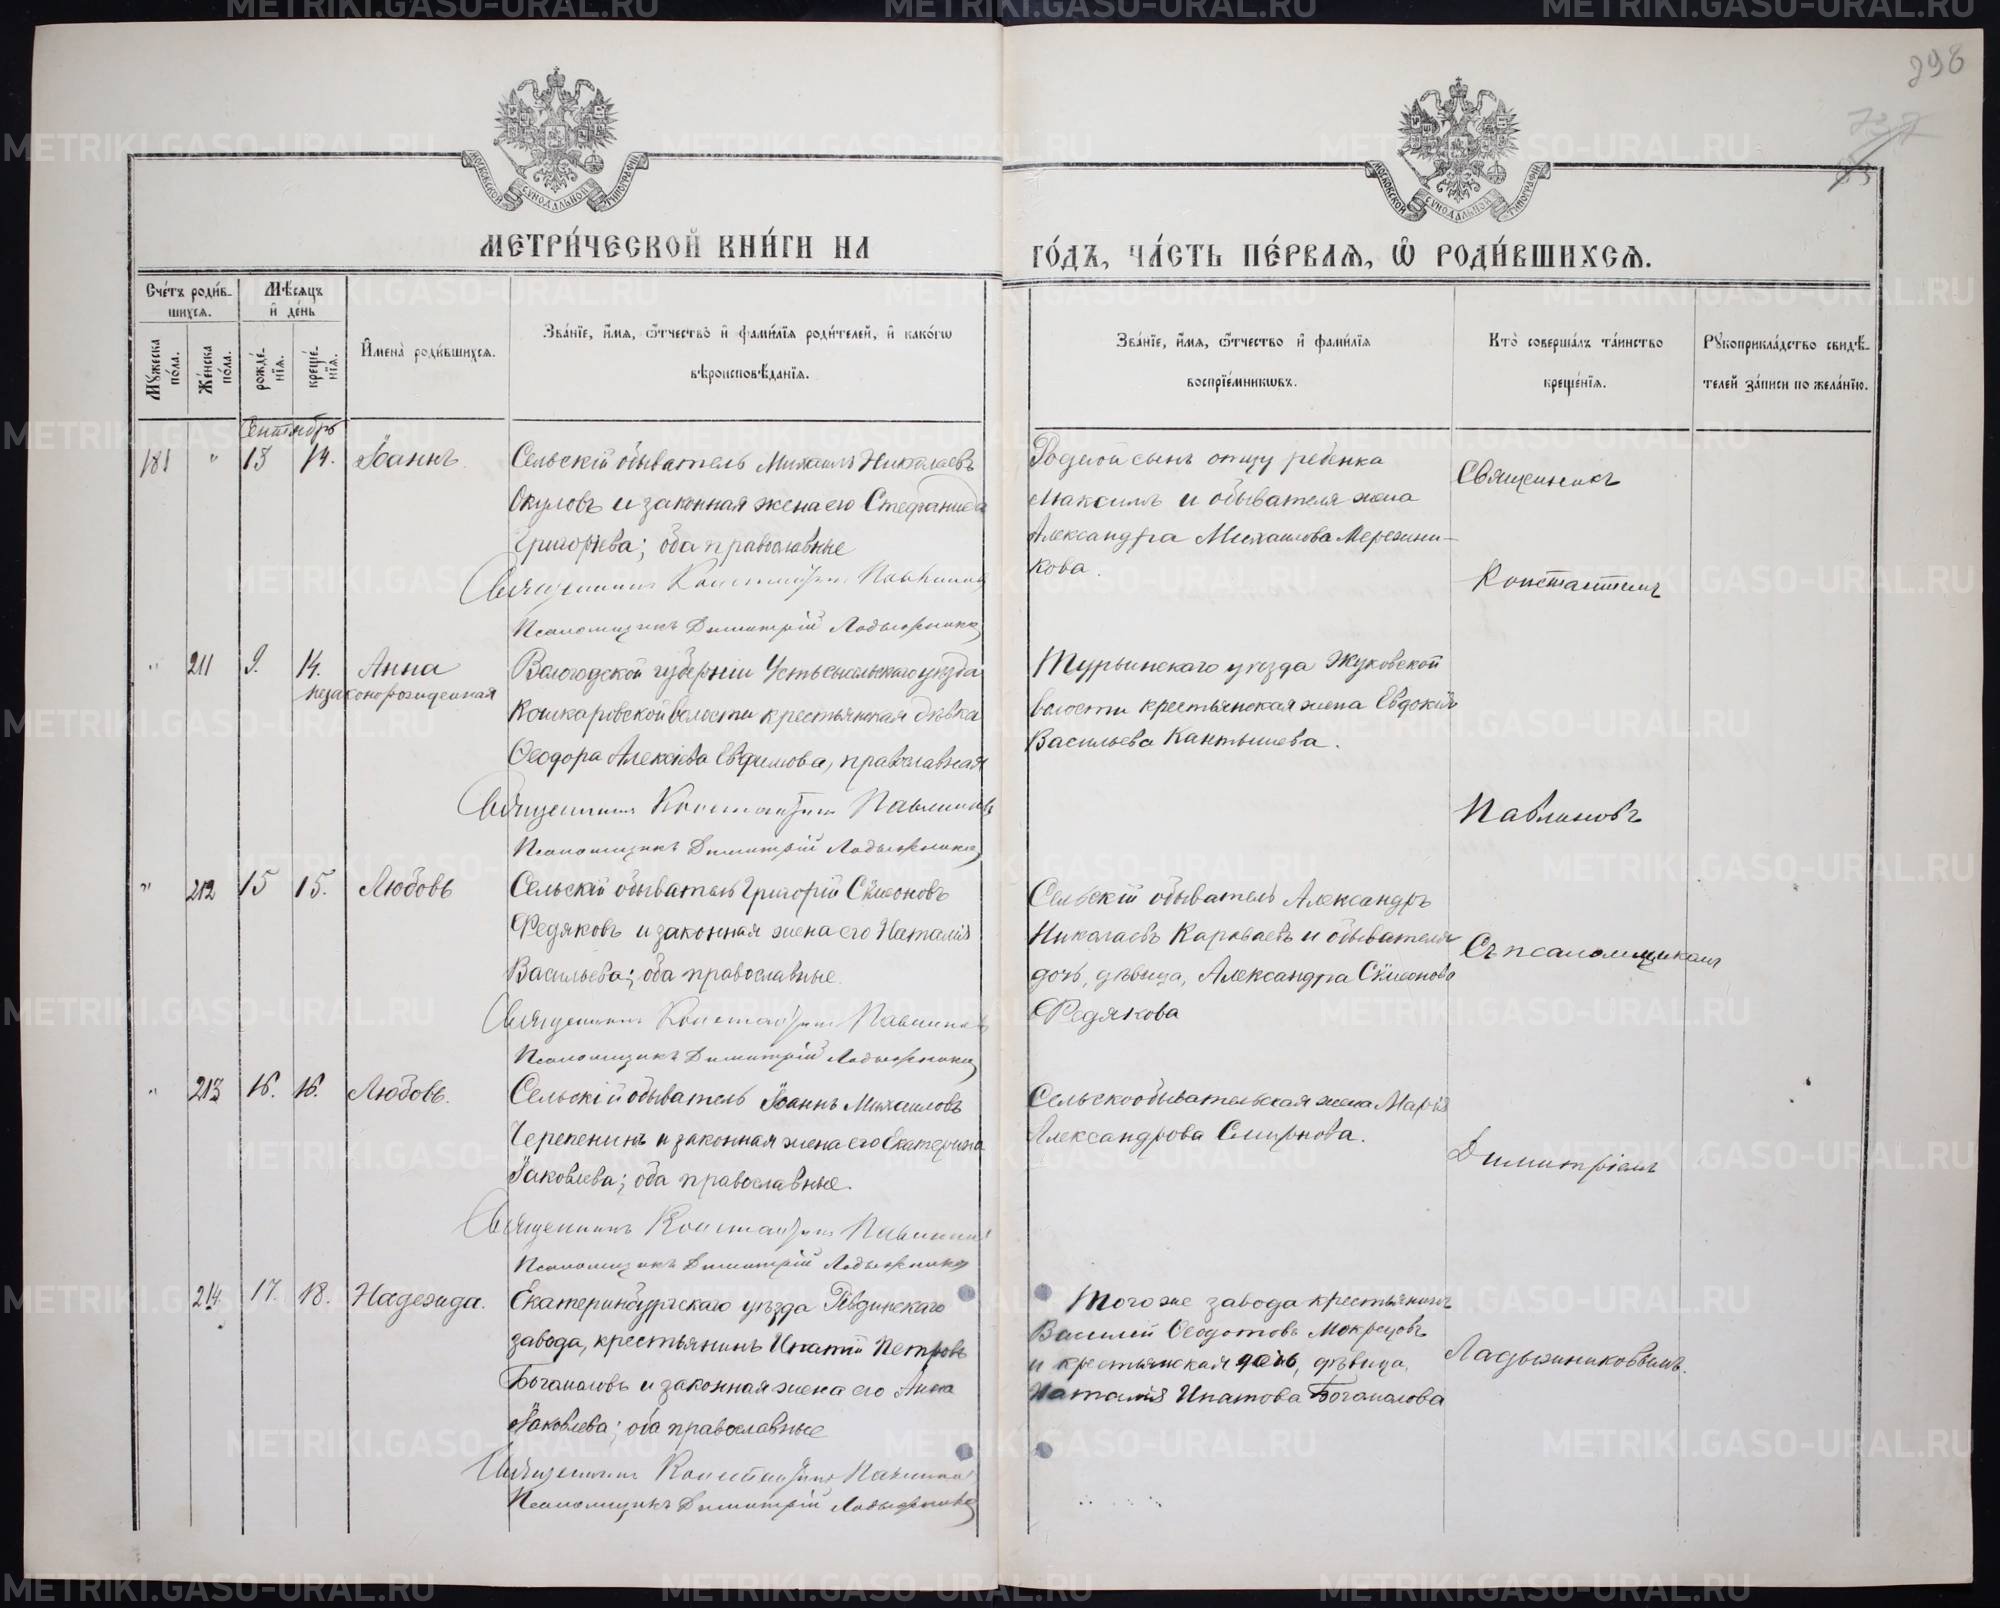 298
МОСКОВСКОЙ СУНОДАЛЬНОЙ ТИПОГРАФІИ
МОСКОВСКОЙ СУНОДАЛЬНОЙ ТИПОГРАФІИ
МЕТРИ́ЧЕСКОЙ КНИ́ГИ НА
ГО́ДЪ, ЧА́СТЬ ПЕ́РВАЯ, Ѽ РОДИ́ВШИХСЯ.
Сче́тъ роди́в-
шихся.
Мѣсяцъ
и де́нь
Мꙋжеска по́ла.
Же́нска по́ла.
рожде́нїя.
креще́нїя.
Имена̀ роди́вшихся.
Зва́нїе, и́мя, ѻ҆́тчество и фами́лїя роди́телей, и како́гѡ
вѣроисповѣ́данїя.
Зва́нїе, и́мя, ѻ҆́тчество и фами́лїя
воспрїе́мникѡвъ.
Кто̀ соверша́лъ та́инство
креще́нїя.
Рꙋкоприкла́дство свидѣ́-
телей за́писи по жела́нїю.
Сентябрь
181 " 13 14. Іоаннъ
Сельскій обыватель Михаилъ Николаевъ
Окуловъ и законная жена его Стефанида
Григорьева; оба православные
Священникъ Константинъ Павлиновъ
Псаломщикъ Димитрій Ладыжников
Родной сынъ отцу ребенка
Максимъ и обывателя жена
Александра Михаилова Мережни-
кова.
Священникъ
Константинъ
" 211 9. 14. Анна
незаконорожденная
Вологодской губерніи Устьсысольскаго уѣзда
Кошкаровской волости крестьянская дѣвка
Ѳеодора Алексіева Евфимова, православная
Священникъ Константинъ Павлиновъ
Псаломщикъ Димитрій Ладыжников
Турьинскаго уѣзда Жуковской
волости крестьянская жена Евдокія
Васильева Кантышева.
Павлиновъ
" 212 15 15. Любовь
Сельскій обыватель Григорій Сѵмеоновъ
Федяковъ и законная жена его Наталія
Васильева; оба православные.
Священникъ Константинъ Павлинов
Псаломщикъ Димитрій Ладыжников
Сельскій обыватель Александръ
Николаевъ Караваевъ и обывателя
дочь, дѣвица, Александра Сѵмеонова
Федякова
Съ псаломщикомъ
" 213 16. 16. Любовь.
Сельскій обыватель Іоаннъ Михаиловъ
Черепенинъ и законная жена его Екатерина
Іаковлева; оба православные.
Священникъ Константинъ Павлинов
Псаломщикъ Димитрій Ладыжников
Сельскообывательская жена Марія
Александрова Смирнова.
Димитріемъ
214. 17. 18. Надежда.
Екатеринбургскаго уѣзда Ревдинскаго
завода, крестьянинъ Ипатій Петровъ
Богомоловъ и законная жена его Анна
Іаковлева; оба православные
Священникъ Константинъ Павлинов
Псаломщикъ Димитрій Ладыжников
Того же завода крестьянинъ
Василій Ѳеодотовъ Мокрецовъ
и крестьянская дочь, дѣвица,
Наталія Ипатова Богомолова
Ладыжниковымъ.
METRIKI.GASO-URAL.RU